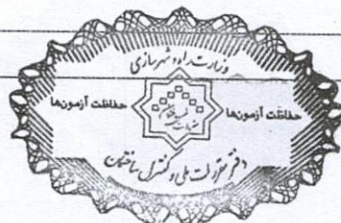 وزارت راه و شهرسازی
حفاظت آزمون‌ها
حفاظت آزمون‌ها
دفتر مقررات ملی و کنترل ساختمان